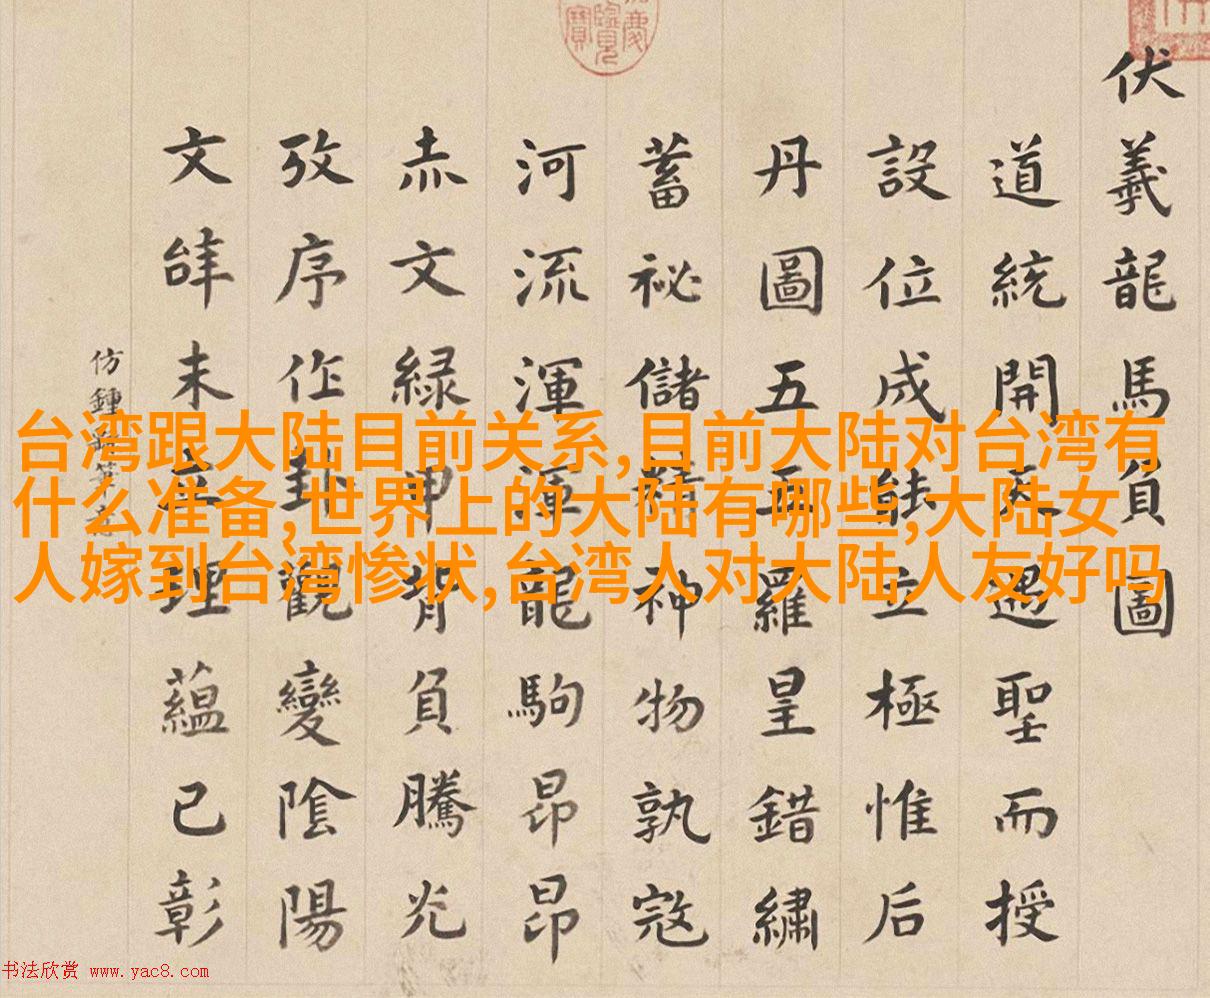 伏羲龍馬負圖
道統開天遇聖而授
設位成能立極惟后
丹圖五羅皇錯繡
蓄祕儲精神物孰寇
河流渾渾龍駒昂昂
赤文緑申背負騰光
攷序作卦觀變陰陽
文未立理蘊已彰
仿鍾繇筆意
台湾跟大陆目前关系,目前大陆对台湾有
什么准备,世界上的大陆有哪些,大陆女
人嫁到台湾惨状,台湾人对大陆人友好吗
书法欣赏 www.yac8.com